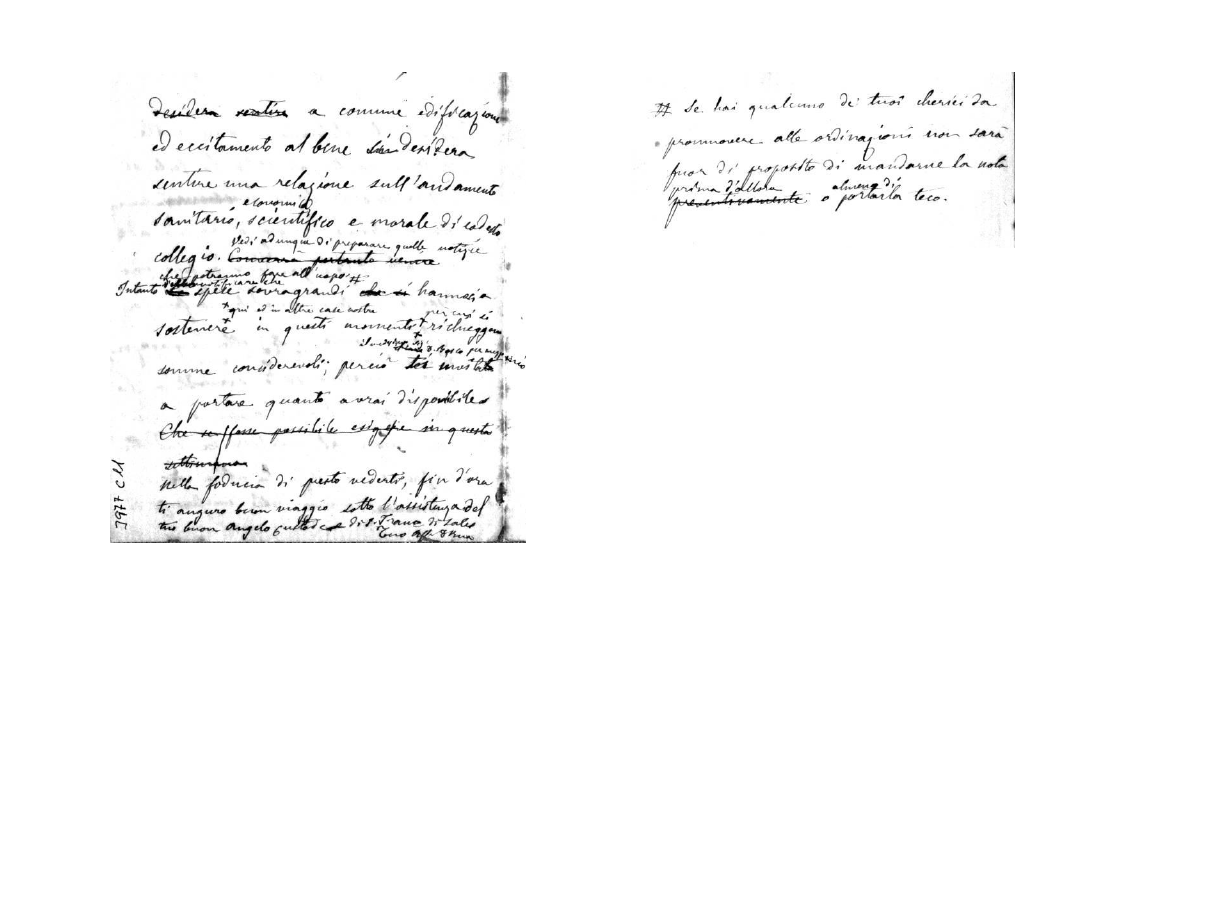 desidera sentire a comune edificazione
ed eccitamento al bene si desidera
sentire una relazione sull'andamento
economico
sanitario, scientifico e morale di codesto
Vedi adunque di preparare quelle notizie
collegio. Converrà pertanto venire
che potranno fare all'uopo #
Intanto spese sovragrandi che si hanno a
+ qui ed in altre case nostre per cui si
sostenere + in questi momenti + richieggono
D. Bosco per mezzo mio
somme considerevoli; perciò invita
a portare quanto avrai disponibile
Che se fosse possibile esigere in questa
settimana
Nella fiducia di presto vederti, fin d'ora
ti auguro buon viaggio sotto l'assistenza del
tuo buon angelo custode e di S. Franco di Sales
Tuo Aff. D Rua
3977 C 11
# Se hai qualcuno de' tuoi cherici da
promuovere alle ordinazioni non sarà
fuor di proposito di mandarne la nota
prima d'allora almeno di
preventivamente o portarla teco.